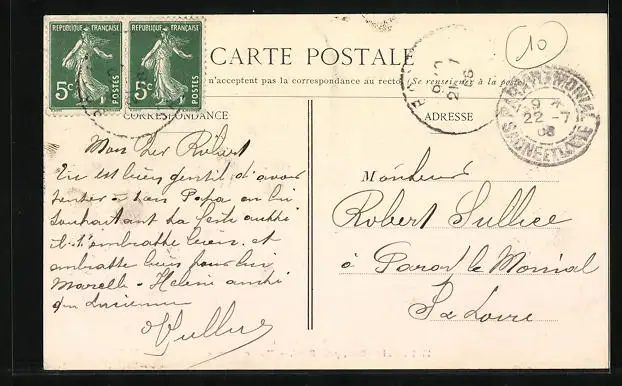 REPUBLIQUE FRANÇAISE
5c POSTES
REPUBLIQUE FRANÇAISE
5c POSTES
CARTE POSTALE
n'acceptent pas la correspondance au recto (Se renseigner à la poste
10
CORRESPONDANCE
ADRESSE
PARAY-LE-MONIAL
9
22 -7
08
SAONE-ET-LOIRE
Mon cher Robert
est bien gentil d'avoir
à ton Papa en lui
souhaitant sa fête aussi
il t'embrasse bien et
embrasse bien pour lui
Marcelle - Helene aussi
que Lucienne
Monsieur
Robert Sullice
à Paray le Monial
S et Loire